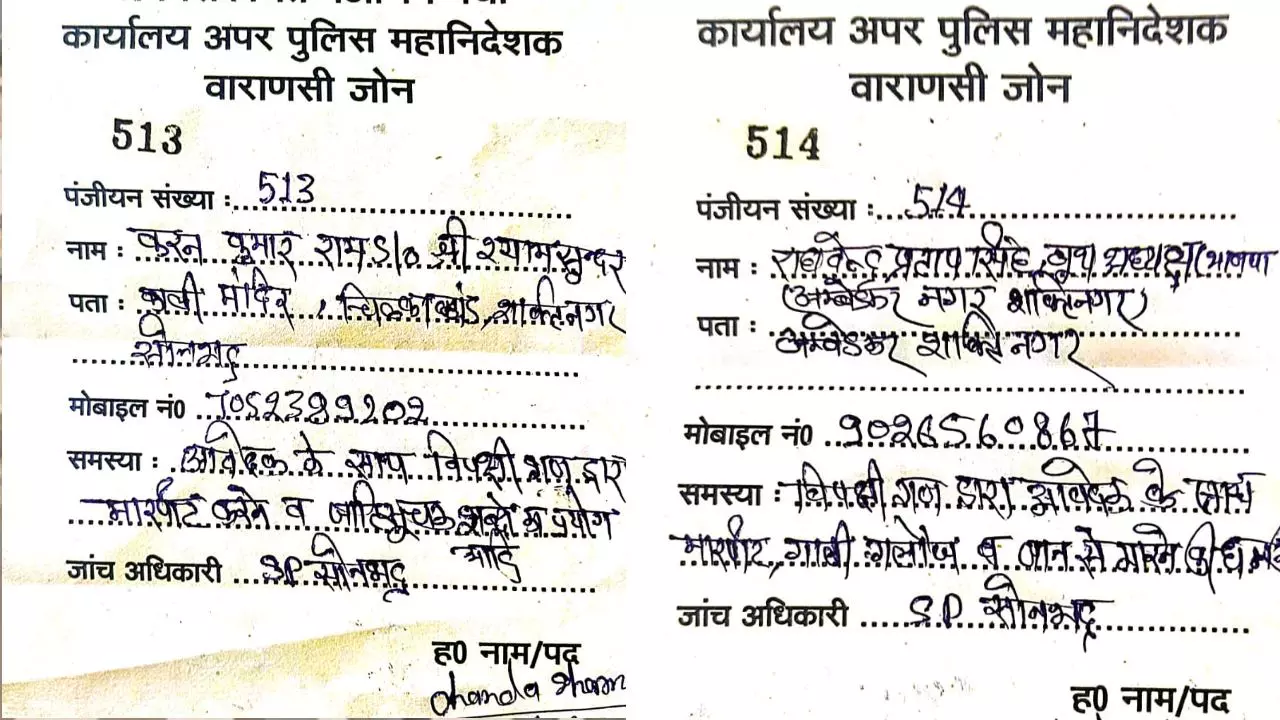 कार्यालय अपर पुलिस महानिदेशक
वाराणसी जोन
513
पंजीयन संख्या : 513
नाम : करन कुमार राम S/o श्री श्याम सुन्दर
पता : काली मंदिर, चिल्काडांड, शक्तिनगर
सोनभद्र
मोबाइल नं0 7052389202
समस्या : आवेदक के साथ विपक्षी गण द्वारा
मारपीट करने व जातिसूचक शब्दो का प्रयोग
आदि
जांच अधिकारी S.P. सोनभद्र
ह0 नाम/पद
कार्यालय अपर पुलिस महानिदेशक
वाराणसी जोन
514
पंजीयन संख्या : 514
नाम : राघवेन्द्र प्रताप सिंह, बूथ अध्यक्ष (भाजपा
(अम्बेडकर नगर शक्तिनगर)
पता : अम्बेडकर शक्ति नगर
मोबाइल नं0 9026560867
समस्या : विपक्षी गण द्वारा आवेदक के साथ
मारपीट, गाली गलौज व जान से मारने की
जांच अधिकारी S.P. सोनभद्र
ह0 नाम/पद